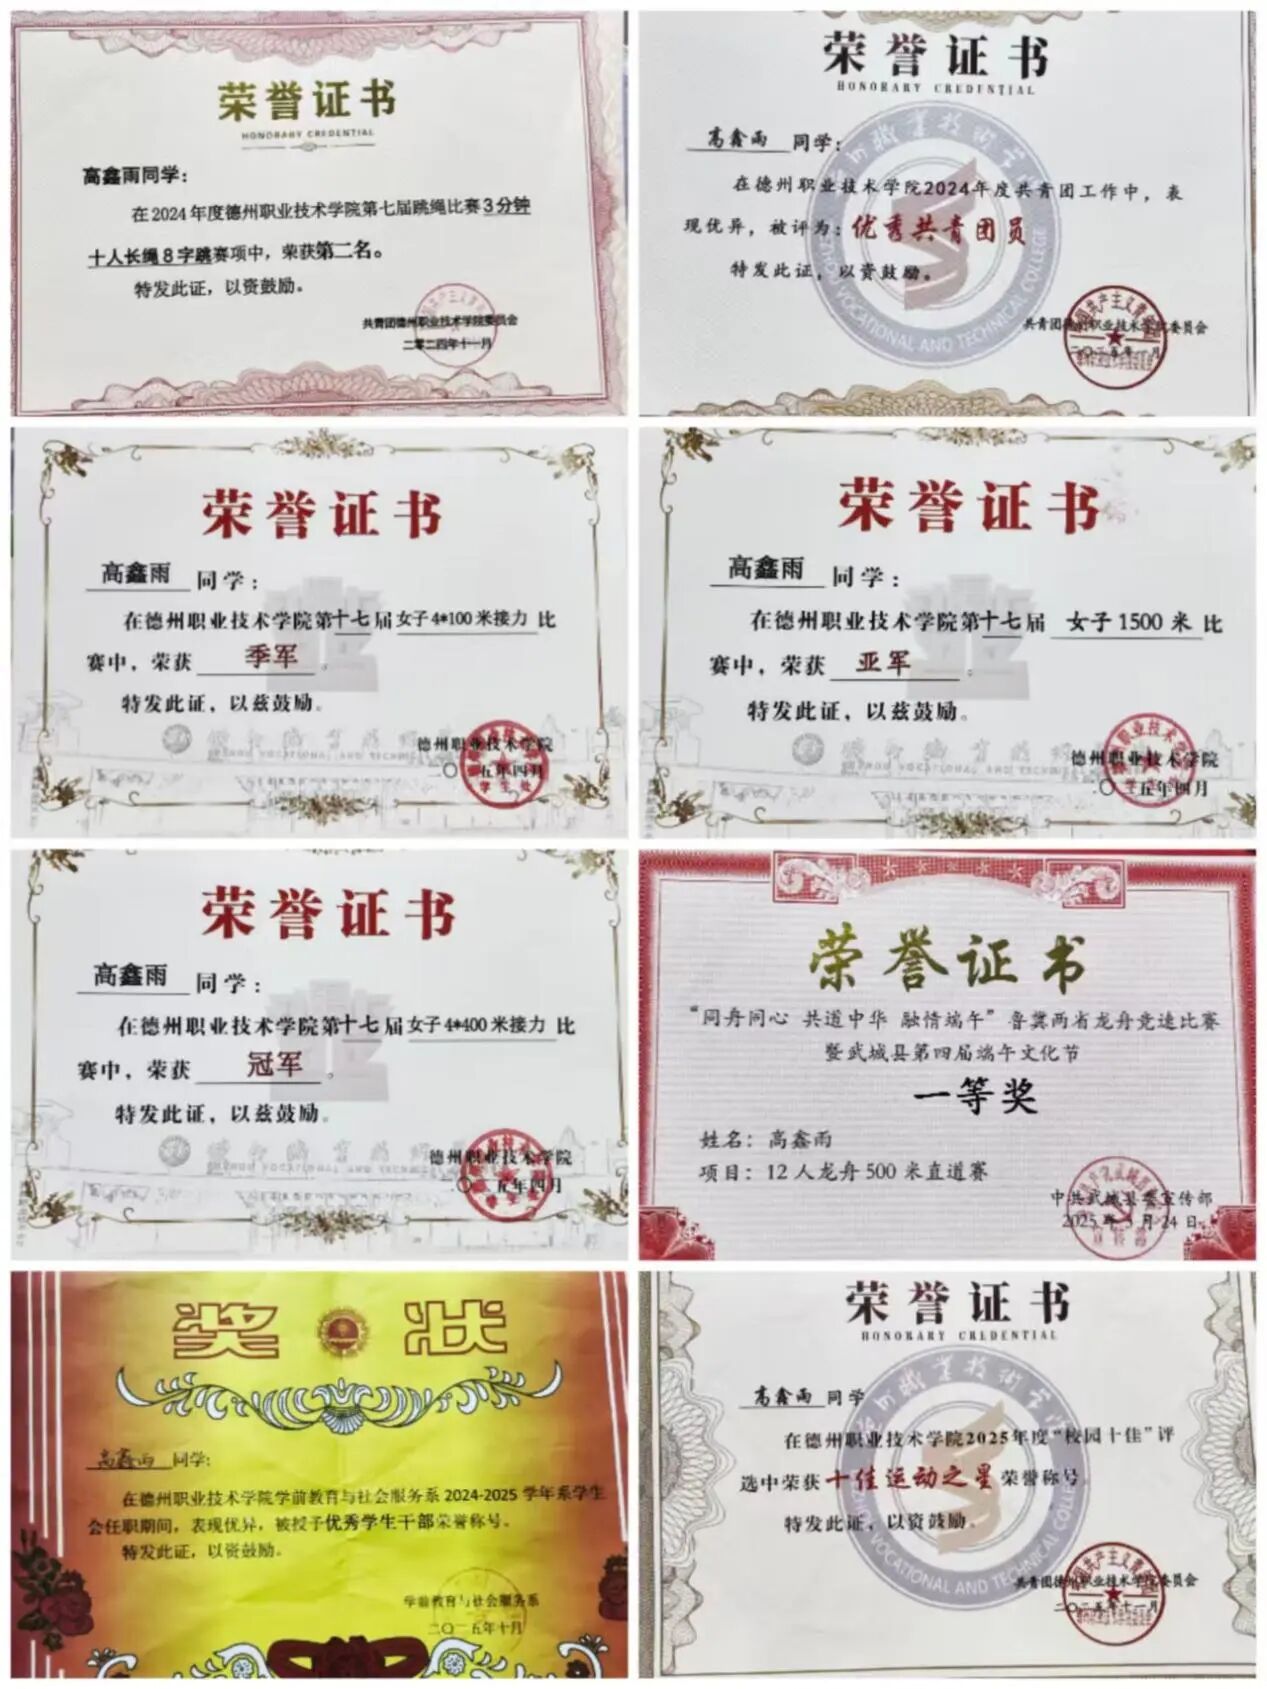 荣誉证书
HONORARY CREDENTIAL
高鑫雨同学：
在2024年度德州职业技术学院第七届跳绳比赛3分钟
十人长绳8字跳赛项中，荣获第二名。
特发此证，以资鼓励。
共青团德州职业技术学院委员会
二零二四年十一月
荣誉证书
HONORARY CREDENTIAL
高鑫雨 同学：
在德州职业技术学院2024年度共青团工作中，表
现优异，被评为：优秀共青团员
特发此证，以资鼓励。
共青团德州职业技术学院委员会
荣誉证书
高鑫雨 同学：
在德州职业技术学院第十七届 女子4*100米接力 比
赛中，荣获 季军 。
特发此证，以兹鼓励。
德州职业技术学院
二〇二五年四月
荣誉证书
高鑫雨 同学：
在德州职业技术学院第十七届 女子1500米 比
赛中，荣获 亚军 。
特发此证，以兹鼓励。
德州职业技术学院
二〇二五年四月
荣誉证书
高鑫雨 同学：
在德州职业技术学院第十七届 女子4*400米接力 比
赛中，荣获 冠军 。
特发此证，以兹鼓励。
德州职业技术学院
二〇二五年四月
荣誉证书
“同舟同心 共道中华 融情端午”鲁冀两省龙舟竞速比赛
暨武城县第四届端午文化节
一等奖
姓名：高鑫雨
项目：12人龙舟500米直道赛
中共武城县委宣传部
2025年5月24日
奖状
高鑫雨 同学：
在德州职业技术学院学前教育与社会服务系2024-2025学年系学生
会任职期间，表现优异，被授予优秀学生干部荣誉称号。
特发此证，以资鼓励。
学前教育与社会服务系
二〇二五年十月
荣誉证书
HONORARY CREDENTIAL
高鑫雨 同学
在德州职业技术学院2025年度“校园十佳”评
选中荣获 十佳运动之星 荣誉称号。
特发此证，以资鼓励。
共青团德州职业技术学院委员会
二〇二五年十一月